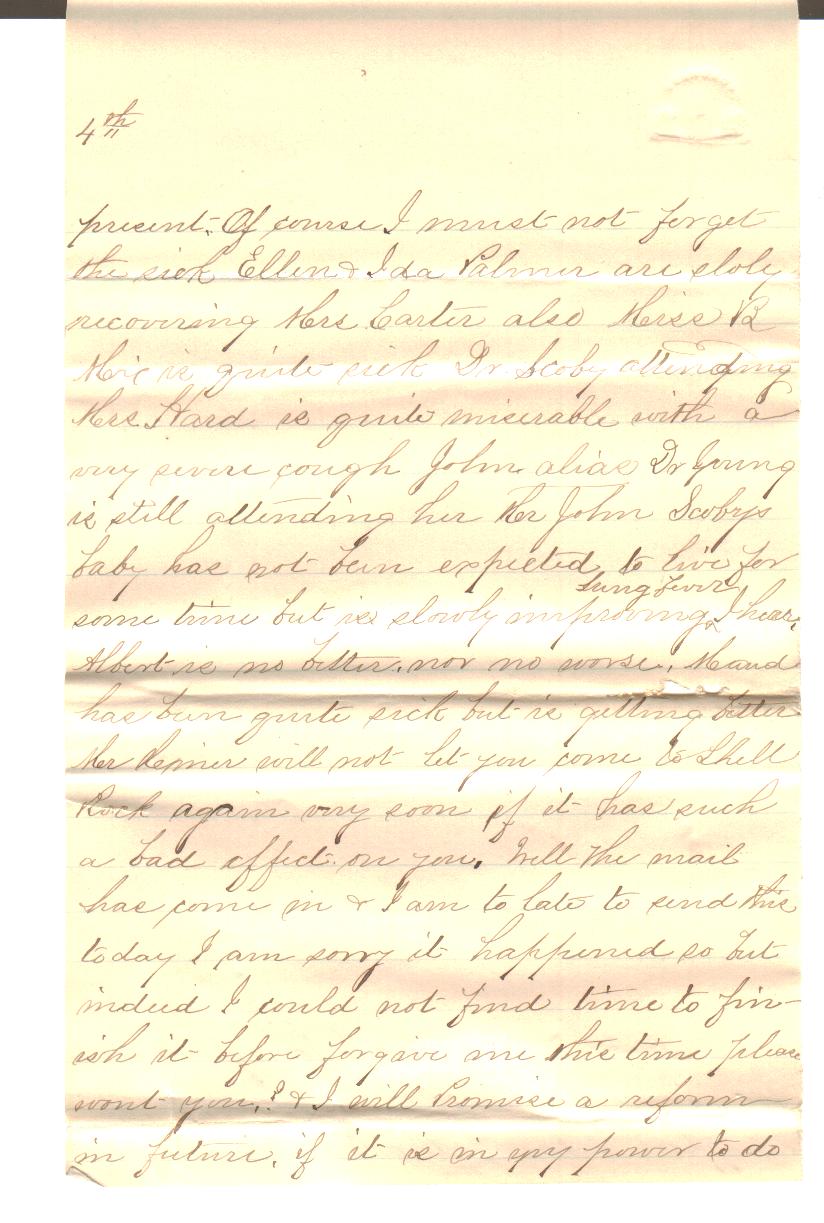 4th
present. Of course I must not forget
the sick Ellen & Ida Palmer are sloly
recovering Mrs Carter also Miss B
is quite sick Dr. Scoby attending
Mrs. Ward is quite miserable with a
very severe cough John alias Dr Young
is still attending her Mr John Scobys
baby has not been expected to live for
lung fever
some time but is slowly improving I hear.
Albert is no better. nor no worse. Maud
has been quite sick but is getting better
Mr will not let you come to Shell
Rock again very soon if it has such
a bad effect on you. Well the mail
has come in & I am to late to send this
today I am sorry it happened so but
indeed I could not find time to fin-
ish it before forgive me this time please
wont you.? & I will Promise a reform
in future. if it is in my power to do